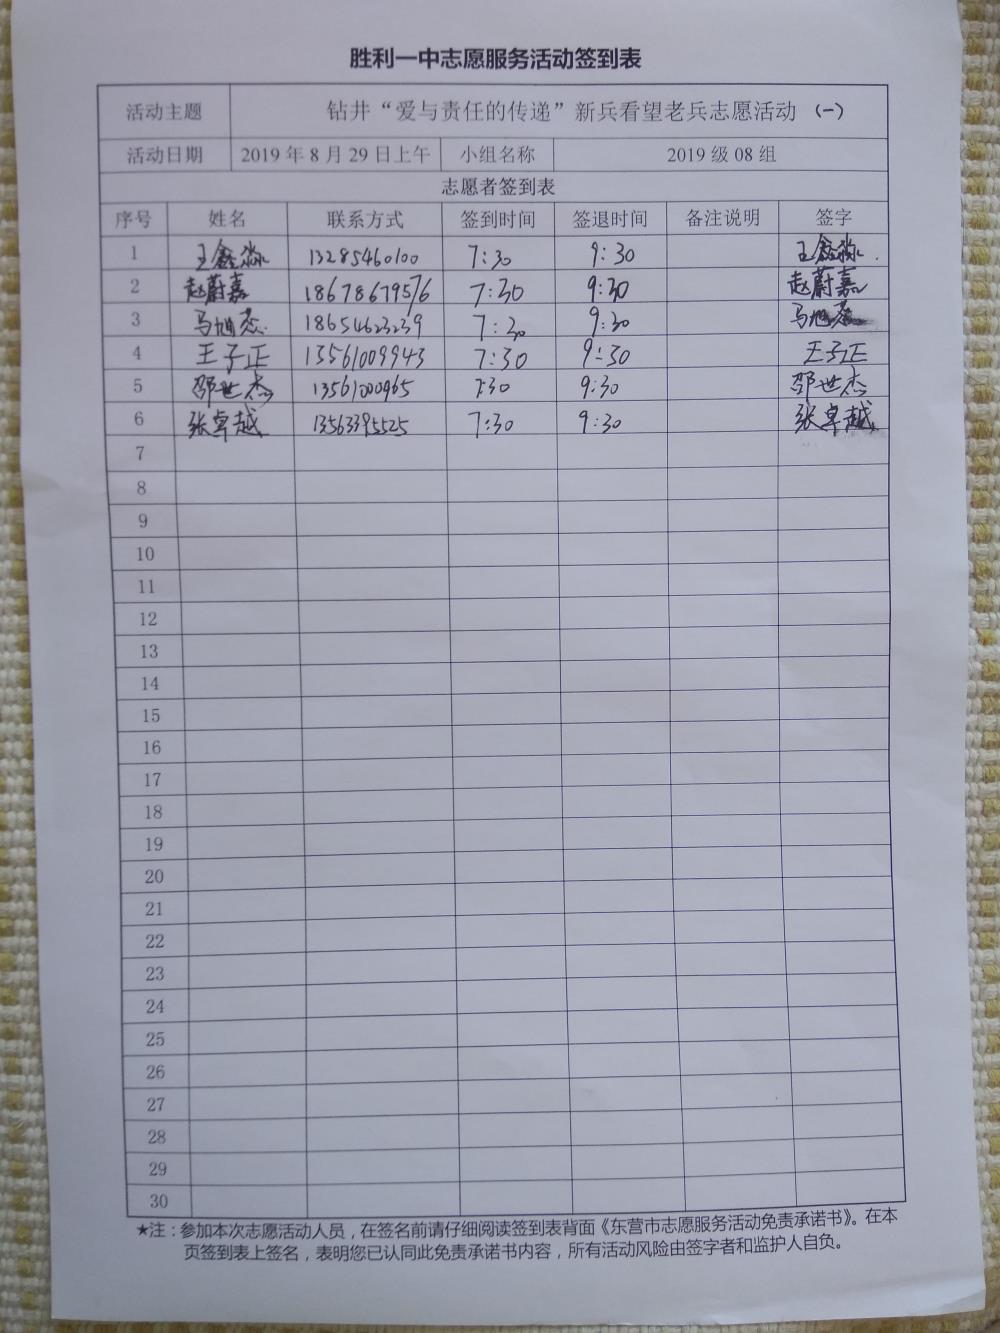 胜利一中志愿服务活动签到表
活动主题 钻井“爱与责任的传递”新兵看望老兵志愿活动 (一)
活动日期 2019 年 8 月 29 日上午 小组名称 2019 级 08 组
志愿者签到表
序号 姓名 联系方式 签到时间 签退时间 备注说明 签字
1 王鑫淼 13285460100 7:30 9:30 王鑫淼
2 赵蔚嘉 18678679576 7:30 9:30 赵蔚嘉
3 马旭杰 18654623239 7:30 9:30 马旭杰
4 王子正 13561009943 7:30 9:30 王子正
5 邵世杰 13561000965 7:30 9:30 邵世杰
6 张卓越 13563395525 7:30 9:30 张卓越
7
8
9
10
11
12
13
14
15
16
17
18
19
20
21
22
23
24
25
26
27
28
29
30
★注：参加本次志愿活动人员，在签名前请仔细阅读签到表背面《东营市志愿服务活动免责承诺书》。在本
页签到表上签名，表明您已认同此免责承诺书内容，所有活动风险由签字者和监护人自负。